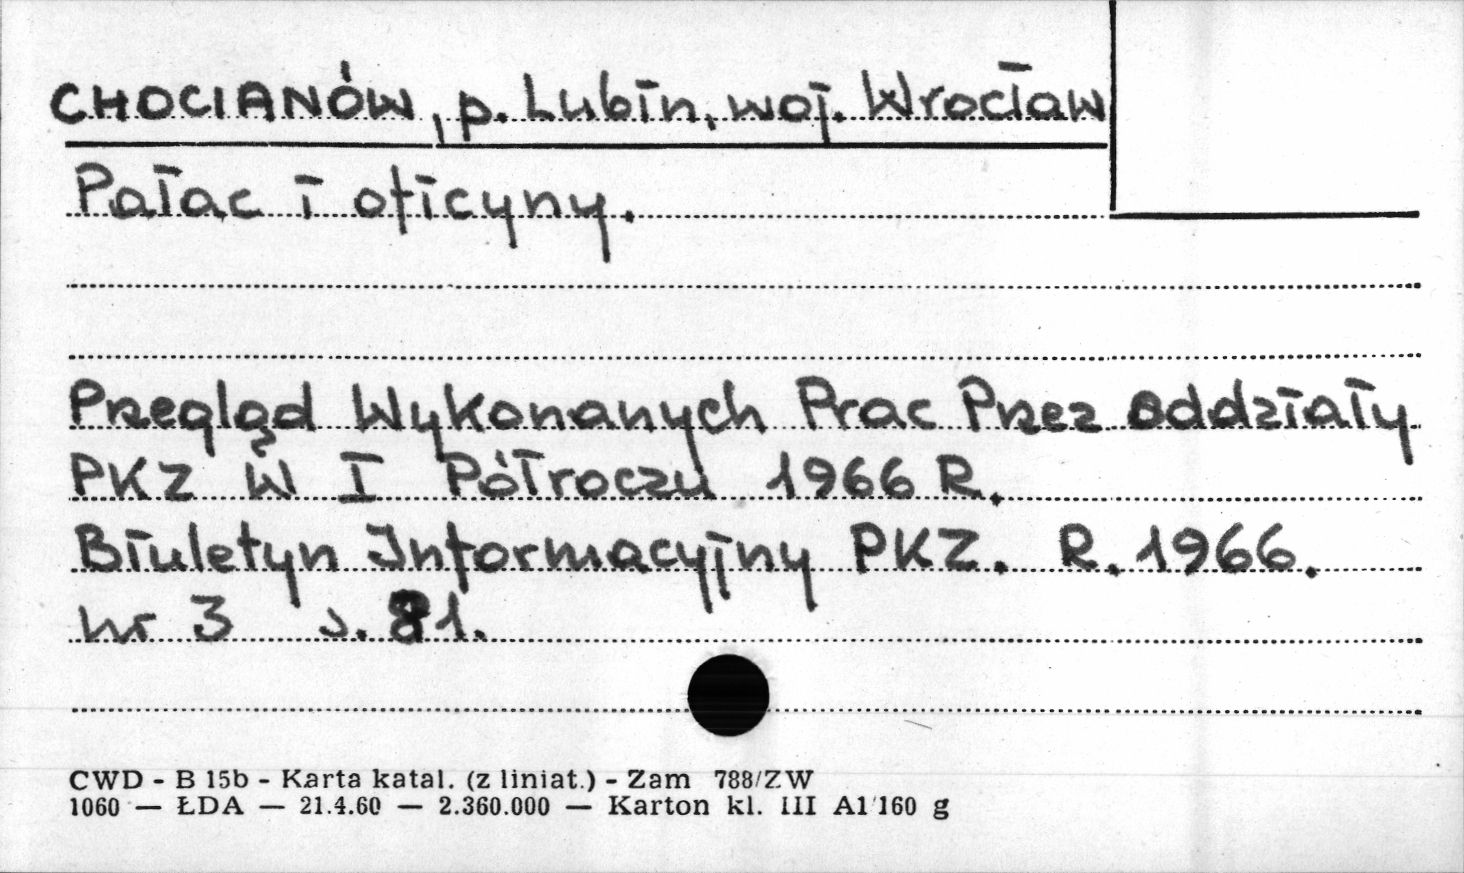 CHOCIANÓW, p. Lubin, woj. Wrocław
Pałac i oficyny.
Przegląd Wykonanych Prac Przez Oddziały
PKZ W I Półroczu 1966 R.
Biuletyn Informacyjny PKZ. R. 1966.
nr 3 s. 81.
CWD - B 15b - Karta katal. (z liniat.) - Zam 788/ZW
1060 — ŁDA — 21.4.60 — 2.360.000 — Karton kl. III A1/160 g